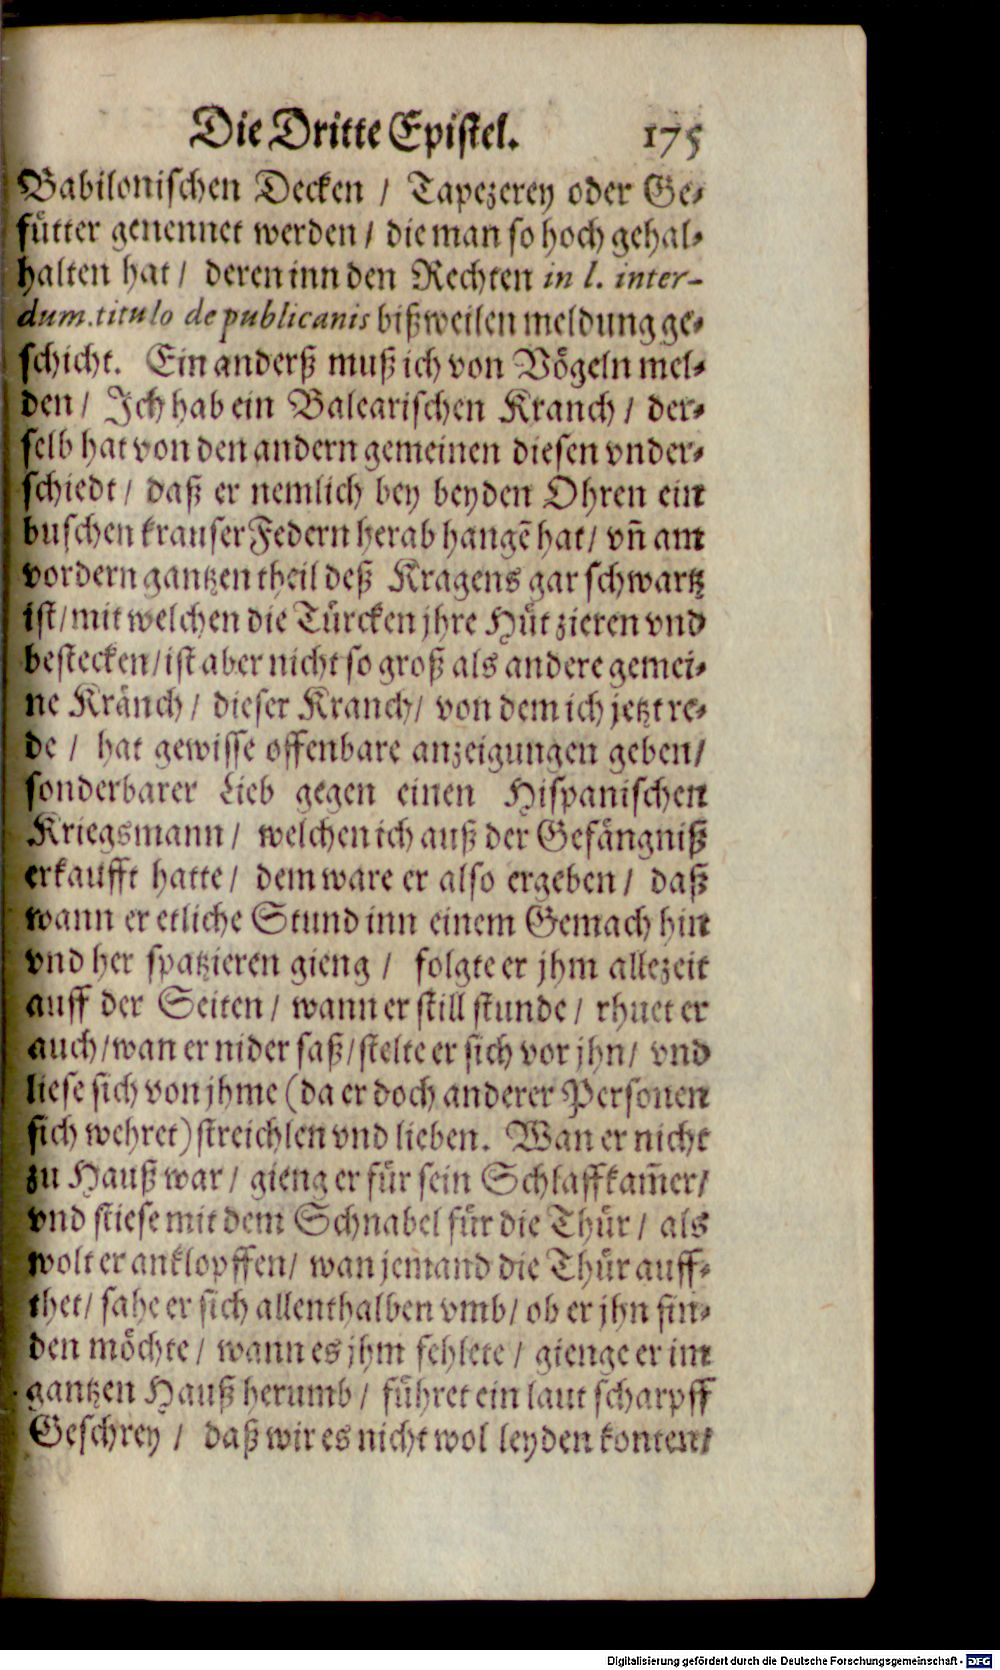 Die Dritte Epistel. 175
Babilonischen Decken / Tapezerey oder Ge-
fütter genennet werden / die man so hoch gehal-
halten hat / deren inn den Rechten in l. inter-
dum. titulo de publicanis bißweilen meldung ge-
schicht. Ein anderß muß ich von Vögeln mel-
den / Ich hab ein Balearischen Kranch / der-
selb hat von den andern gemeinen diesen vnder-
schiedt / daß er nemlich bey beyden Ohren ein
buschen krauser Federn herab hangẽ hat / vñ am
vordern gantzen theil deß Kragens gar schwartz
ist / mit welchen die Türcken jhre Hüt zieren vnd
bestecken / ist aber nicht so groß als andere gemei-
ne Kränch / dieser Kranch / von dem ich jetzt re-
de / hat gewisse offenbare anzeigungen geben /
sonderbarer Lieb gegen einen Hispanischen
Kriegsmann / welchen ich auß der Gefängniß
erkaufft hatte / dem ware er also ergeben / daß
wann er etliche Stund inn einem Gemach hin
vnd her spatzieren gieng / folgte er jhm allezeit
auff der Seiten / wann er still stunde / rhuet er
auch / wan er nider saß / stelte er sich vor jhn / vnd
liese sich von jhme (da er doch anderer Personen
sich wehret) streichlen vnd lieben. Wan er nicht
zu Hauß war / gieng er für sein Schlaffkam̃er /
vnd stiese mit dem Schnabel für die Thür / als
wolt er anklopffen / wan jemand die Thür auff-
thet / sahe er sich allenthalben vmb / ob er jhn fin-
den möchte / wann es jhm fehlete / gienge er im
gantzen Hauß herumb / führet ein laut scharpff
Geschrey / daß wir es nicht wol leyden konten /
Digitalisierung gefördert durch die Deutsche Forschungsgemeinschaft - DFG